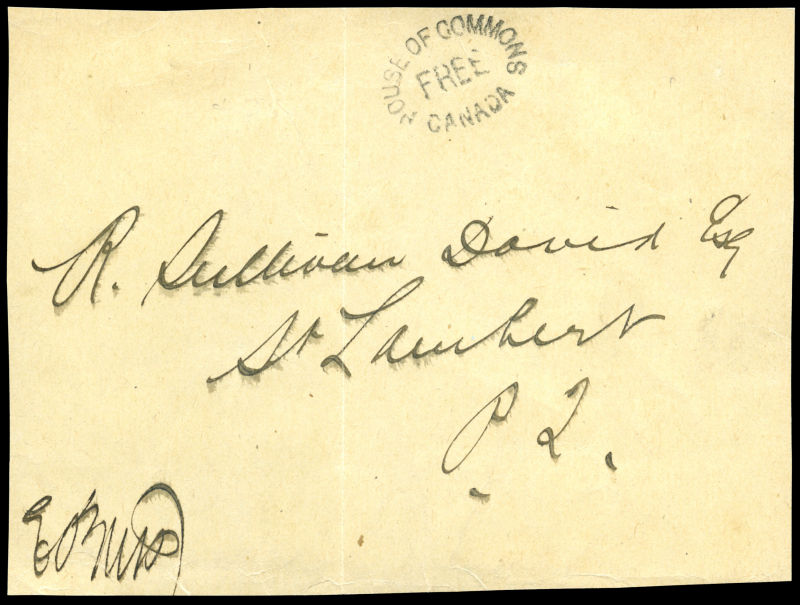 HOUSE OF COMMONS
FREE
CANADA
R. Sullivan David Esq
St Lambert
P. Q.